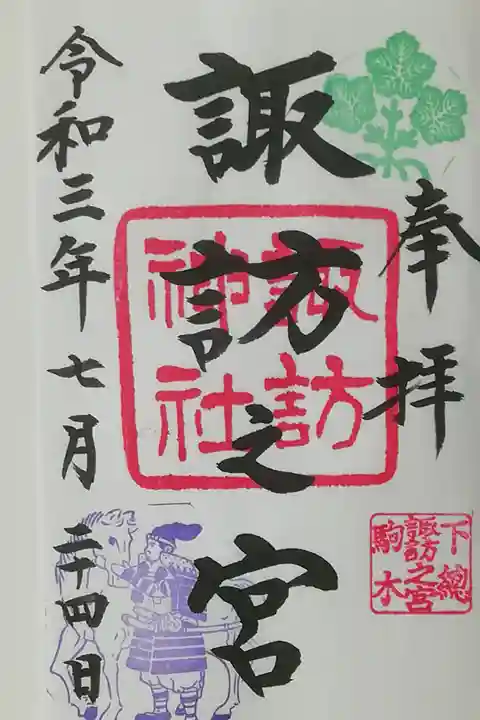 奉拝
諏訪之宮
諏訪神社
下總
諏訪之宮
駒木
令和三年七月二十四日